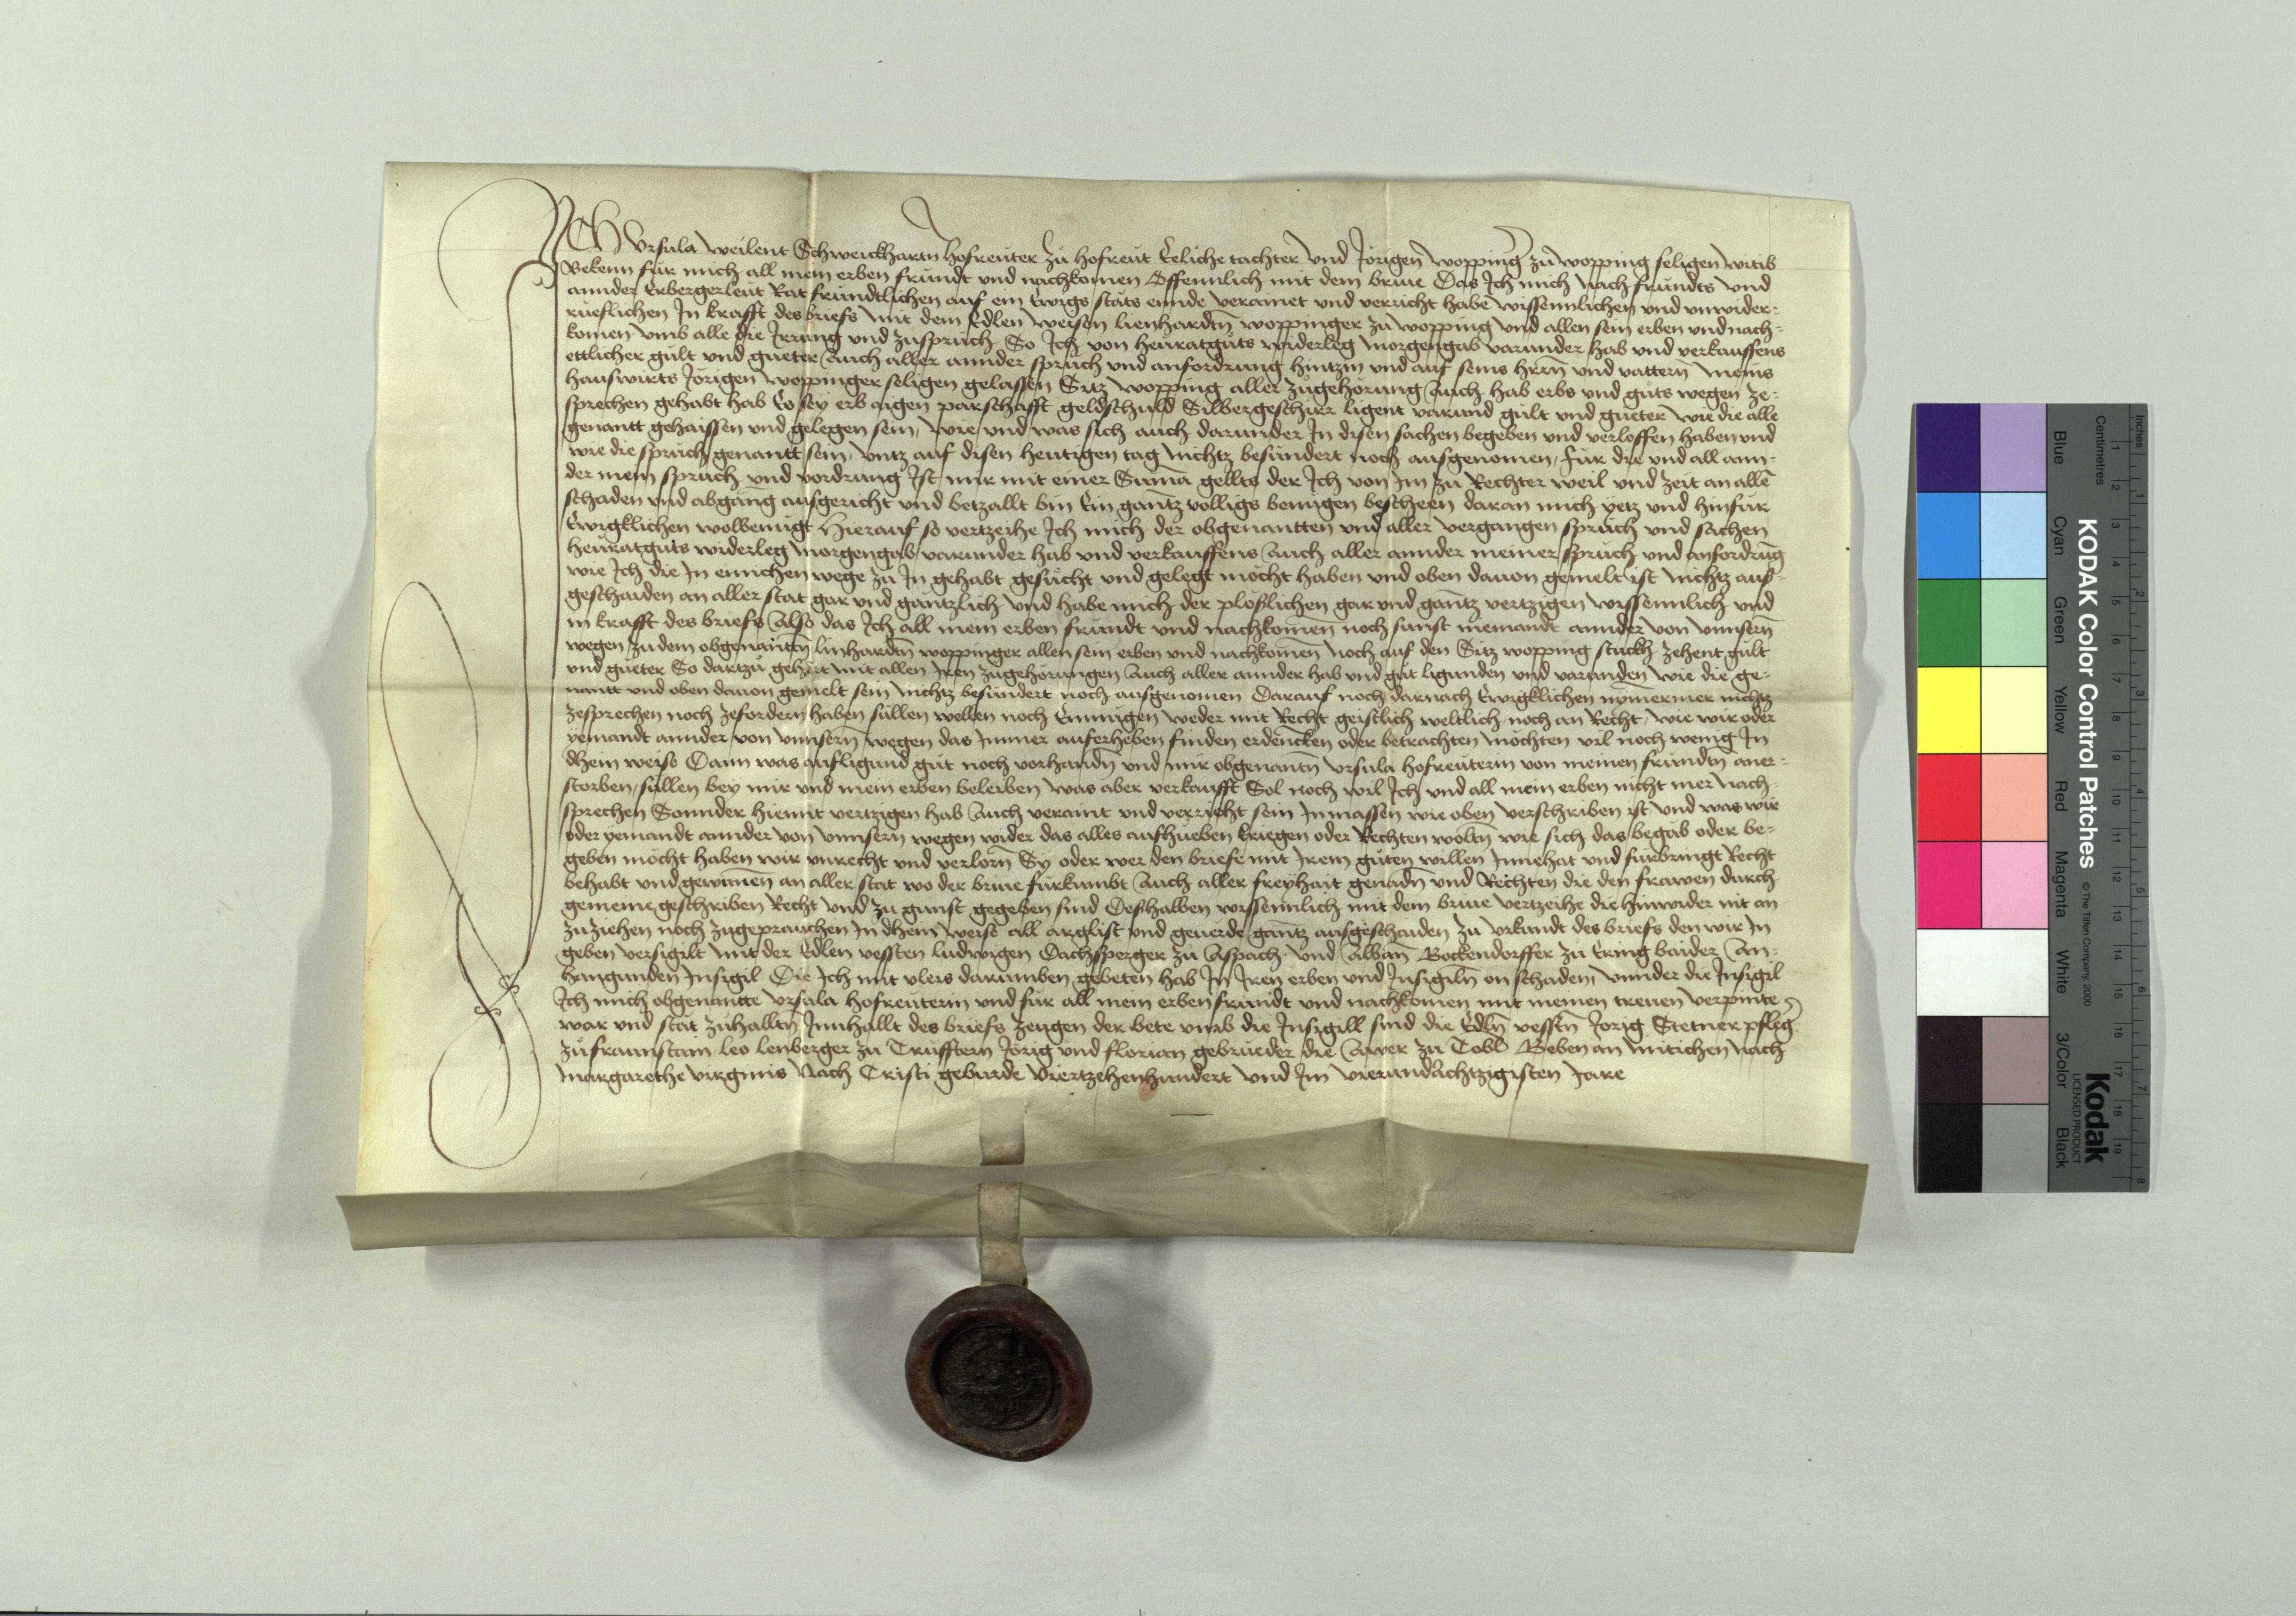 ICH Ursula weilent Schweickhartn hofreuter zu hofreut Eeliche tachter und Jörigen wopping zu wopping seligen witib
Bekenn fur mich all mein erben frundt und nachkomen Offennlich mit dem briue Das Ich mich nach frundts und
annder Erbergerleut Rat frundtlichen auf ein Ewigs stäts ennde verainet und verricht habe wissennlichen und unwider-
rueflichen In krafft des briefs mit dem Edlen weisen lienhardtn woppinger zu wopping und allen sein erben und nach-
komen umb alle die Irrung und zuspruch So Ich von heuratguts widerleg morgengab varunder hab und verkauffens
ettlicher gult und gueter Auch aller annder spruch und anfordrung hintzin und auf seins hrrn und vattern meins
hauswirts Jörigen woppinger seligen gelassen Sitz wopping aller zugehörung Auch hab erbs und guts wegen ze-
sprechen gehabt hab Es sey erb aigen parschafft geldschuld Silbergeschirr ligent varund gult und gueter wie die alle
genantt gehaissen und gelegen sein, wie und was sich auch darunder In disen sachen begeben und verloffen haben und
wie die spruch genantt sein, untz auf disen heutigen tag nichtz besundert noch ausgenomen, fur die und all ann-
der mein spruch und vordrung Ist mir mit einer Suma gellts der Ich von Im zu Rechter weil und zeit an alln
schaden und abgang ausgericht und betzallt bin Ein gantz volligs benugen bescheen daran mich yetz und hinfur
Ewigklichen wolbenugt Hierauf so vertzeihe Ich mich der obgenantten und aller vergangen spruch und sachen
heuratguts widerleg morgengab varunder hab und verkauffens Auch aller annder meiner spruch und anfordrung
wie Ich die In ennichen wege zu In gehabt gesucht und gelegt möcht haben und oben dauon gemelt ist nichtz auß-
geschaiden an aller stat gar und gäntzlich und habe mich der plößlichen gar und gantz vertzigen wissennlich und
in krafft des briefs Also das Ich all mein erben frundt und nachkomen noch sunst niemandt annder von unnsern
wegen zu dem obgenantn linhardtn woppinger allen sein erben und nachkomen noch auf den Sitz wopping stuckh zehent gult
und gueter So dartzu gehört mit allen Iren zugehörungen Auch aller annder hab und gut ligunden und varunden wie die ge-
nantt und oben dauon gemelt sein nichtz besundert noch ausgenomen Darauf noch darnach Ewigklichen nymermer nichtz
zesprechen noch zefordern haben sullen wellen noch Ennmugen weder mit Recht geistlich weltlich noch an Recht, wie wir oder
yemandt annder von unnsern wegen das Immer auferheben finden erdencken oder betrachten möchten vil noch wenig In
dhein weise Dann was aufligund gut noch vorhandn und mir obgenantn Ursula hofreuterin von meinen frundtn aner-
storben, sullen bey mir und mein erben beleiben was aber verkaufft Sol noch wil Ich und all mein erben nicht mer nach-
sprechen Sonnder hiemit vertzigen hab Auch veraint und verricht sein Inmassen wie oben verschriben ist und was wir
oder yemandt annder von unnsern wegen wider das alles anfhueben kriegen oder Rechten woltn wie sich das begab oder be-
geben möcht haben wir unrecht und verlorn Sy oder wer den briefe mit Irem guten willen Innehat und furbringt Recht
behabt und gewunen an aller stat wo der briue furkumbt Auch aller freyhait genadn und Rechten die den frawen durch
gemeine geschriben Recht und zu gunst gegeben sind Deshalben wissennlich mit dem briue vertzeihe die hinwider nit an
zuziehen noch zugeprauchen In dhein weise all arglist und geuerde gantz ausgeschaiden zu urkundt des briefs den wir In
geben versigilt mit der Edlen vessten ludwigen Dachssperger zu Aspach und Alban Bockendorffer zu Ering baider An-
hangunden Insigil Die Ich mit vleis darumben gebeten hab In Iren erben und Insigiln on schaden, unnder die Insigil
Ich mich obgenantte Ursula hofreuterin und fur all mein erben frundt und nachkomen mit meinen treuen verpinte
war und stät zuhalltn Innhallt des briefs zeugen der bete umb die Insigill sind die Edln vesstn Jorig Stetner pfleg
zu fraunstain leo lenberger zu Trufftern Jorig und florian gebrueder die Awer zu Tobl Geben an mitichen nach
margarethe virginis Nach Cristi geburde Viertzehenhundert und Im vierundachtzigisten Jare
Inches
Centimetres
Blue
Cyan
Green
Yellow
Red
Magenta
White
3/Color
Black
KODAK Color Control Patches
© The Tiffen Company, 2000
Kodak
LICENSED PRODUCT